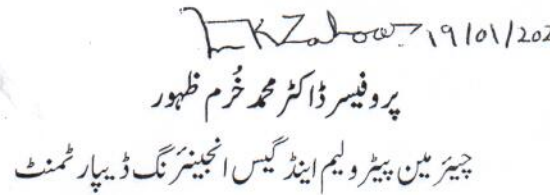 K Zahoor 19/01/202
پروفیسر ڈاکٹر محمد خُرم ظہور
چیئر مین پیٹرولیم اینڈ گیس انجینئرنگ ڈیپارٹمنٹ